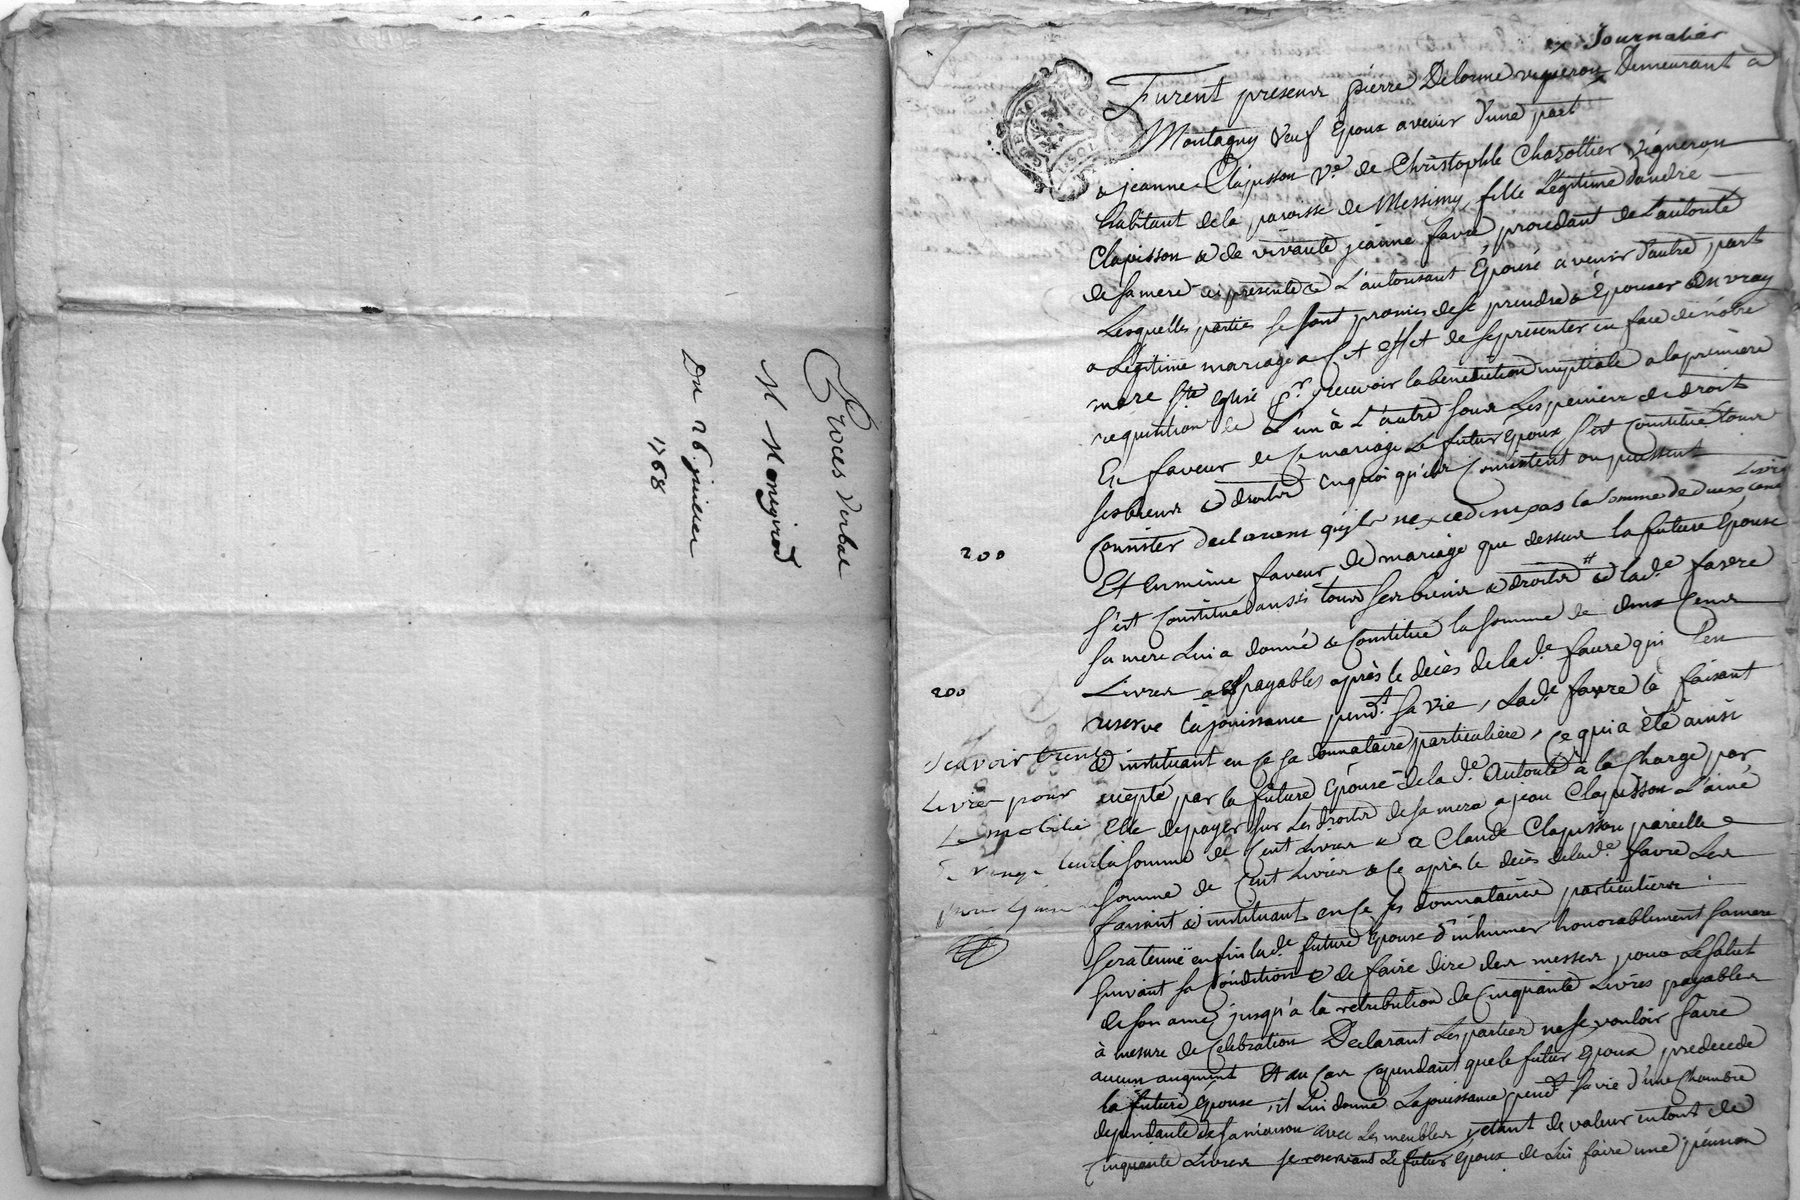 Procès Verbal
M Mongirod
Du 26 janvier
1768
Journalier
Furent presens pierre Delorme vigneron Demeurant à
Montagny veuf Epoux avenir d'une part
& jeanne Clapisson Ve. de Christophle Chazottier vigneron
habitant de la paroisse de Messimy, fille Légitime d'andré
Clapisson & de vivante jeanne favre, procedant de L'autorité
de sa mere ici presente & L'autorisant Epouse avenir d'autre part
Lesquelles parties se sont promis de se prendre & Epouser en vray
& Légitime mariage & à cet effet de se presenter en face de nôtre
mere ste. eglise pr. recevoir la bénédiction nuptiale a la première
requisition de L'un à L'autre sous Les peines de droit
En faveur de Ce mariage Le futur Epoux s'est Constitué tous
ses biens & droits en quoi qu'ils Consistent ou puissent
Consister declarans qu'ils n'excedent pas la somme de deux cens Livres
200
Et en même faveur de mariage que dessus la future Epouse
s'est Constitué aussi tous ses biens & droits # & lad. favre
sa mere Lui a donné & Constitué la somme de deux Cens
200
Livres payables après le décès de lad. favre qui s'en
reserve la jouissance pendt. sa vie, Lad. favre la faisant
& instituant en Ce sa donnataire particulière, Ce qui a été ainsi
accepté par la future Epouse de lad. Autorité à la Charge par
Elle de payer sur Les droits de sa mere a jean Clapisson L'ainé
la somme de Cent Livres & a Claude Clapisson pareille
somme de Cent Livres & Ce après le décès de lad. favre Les
faisant & instituant en Ce ses donnataires particuliers
sera tenuë enfin lad. future Epouse d'inhumer honorablement sa mere
suivant sa Condition & de faire dire des messes pour Le salut
de son ame jusqu'à la retribution de Cinquante Livres payables
à mesure de Célébration Declarant Les parties ne se vouloir faire
aucun augment Et au Cas Cependant que le futur Epoux predecede
la future Epouse, il Lui donne La jouissance pendt. sa vie d'une Chambre
dependante de sa maison avec Les meubles etant de valeur en tout de
Cinquante Livres se reservant Le futur Epoux de Lui faire une pension
sçavoir trente
Livres pour
Le mobilier